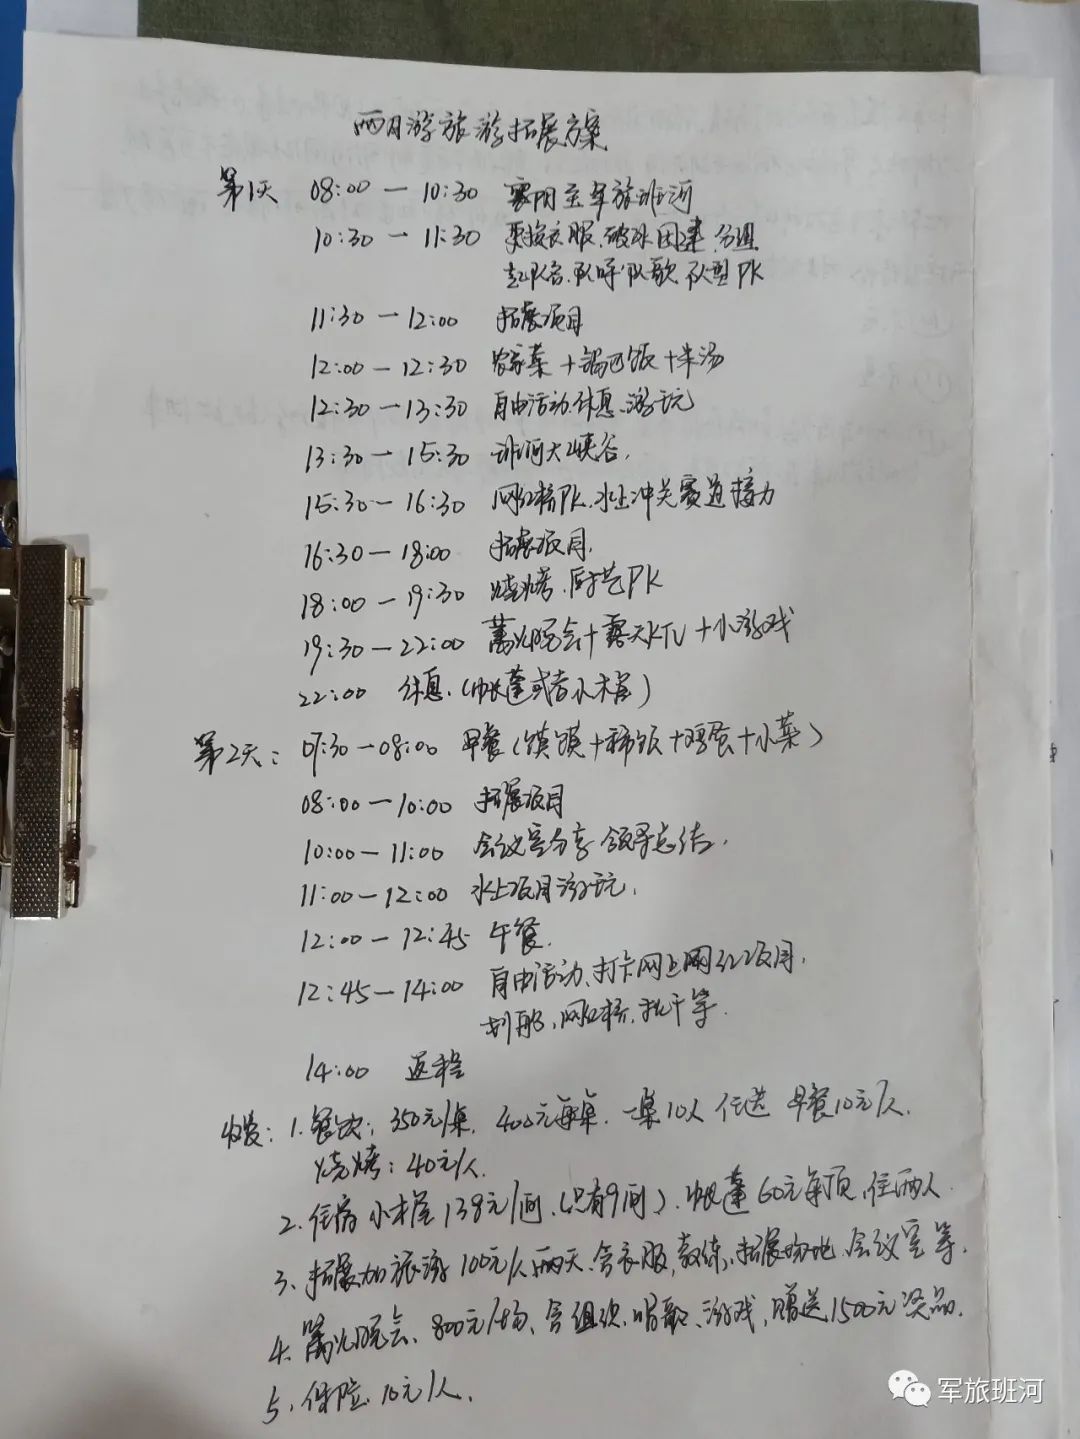 两日游旅游拓展方案
第1天 08:00—10:30 襄阳至军旅班河
10:30—11:30 更换衣服、破冰团建、分组
起队名、队呼、队歌、队型PK
11:30—12:00 拓展项目
12:00—12:30 农家菜+锅巴饭+米汤
12:30—13:30 自由活动、休息、游玩
13:30—15:30 班河大峡谷、
15:30—16:30 网红桥PK、水上冲关赛道接力
16:30—18:00 拓展项目、
18:00—19:30 烧烤、厨艺PK
19:30—22:00 篝火晚会+露天KTV+小游戏
22:00 休息、(帐篷或者小木屋)
第2天: 07:30—08:00 早餐(馍馍+稀饭+鸡蛋+小菜)
08:00—10:00 拓展项目
10:00—11:00 会议室分享 领导总结、
11:00—12:00 水上项目游玩、
12:00—12:45 午餐、
12:45—14:00 自由活动、打卡网上网红项目、
划船、网红桥、秋千等
14:00 返程
收费: 1、餐饮: 350元/桌、400元每桌、一桌10人 任选 早餐10元/人、
烧烤: 40元/人、
2、住宿 小木屋138元/间、(只有9间)、帐篷60元每顶、住两人
3、拓展加旅游100元/人、两天、含衣服、教练、拓展场地、会议室等、
4、篝火晚会、800元/场、含组织、唱歌、游戏、赠送1500元奖品、
5、保险、10元/人、
军旅班河